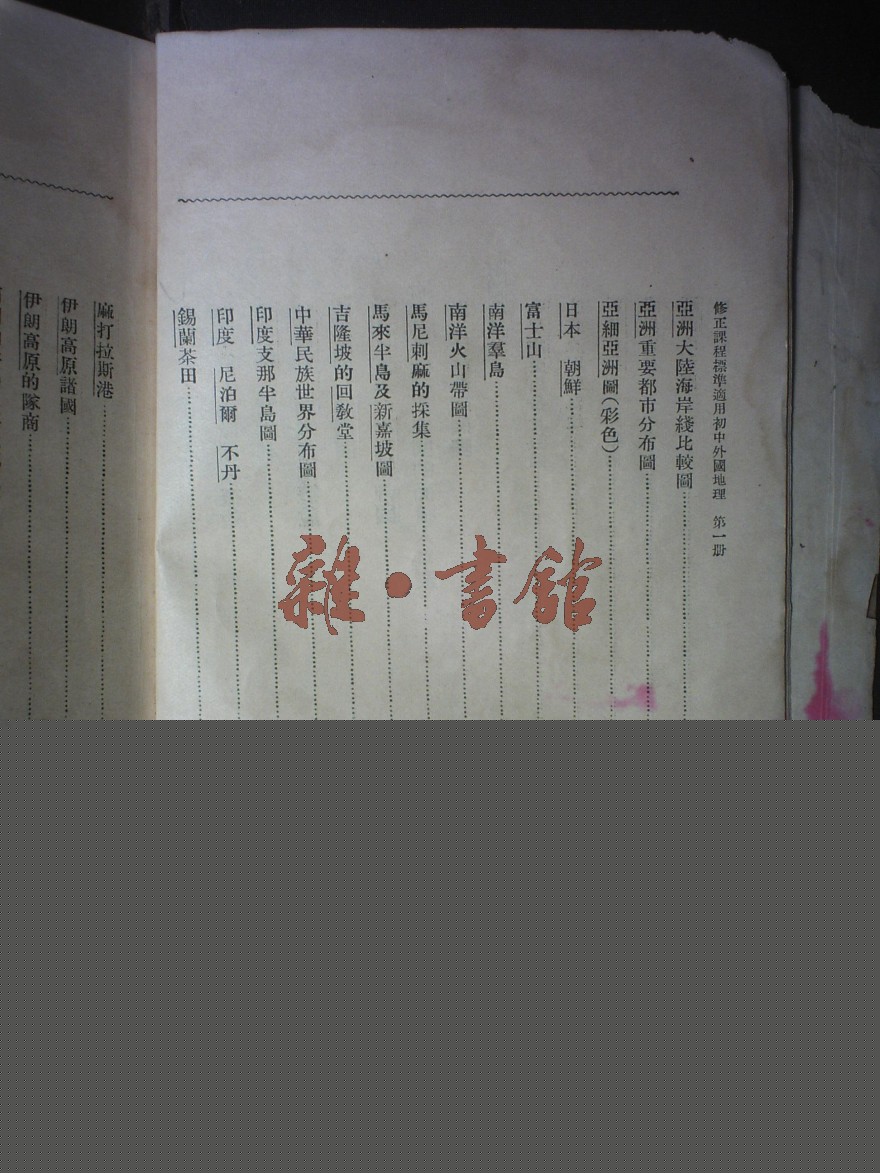 修正課程標準適用初中外國地理　第一册
亞洲大陸海岸綫比較圖
亞洲重要都市分布圖
亞細亞洲圖(彩色)
日本　朝鮮
富士山
南洋羣島
南洋火山帶圖
馬尼刺麻的採集
馬來半島及新嘉坡圖
吉隆坡的回教堂
中華民族世界分布圖
印度支那半島圖
印度　尼泊爾　不丹
錫蘭茶田
麻打拉斯港
伊朗高原諸國
伊朗高原的隊商
雜·書館